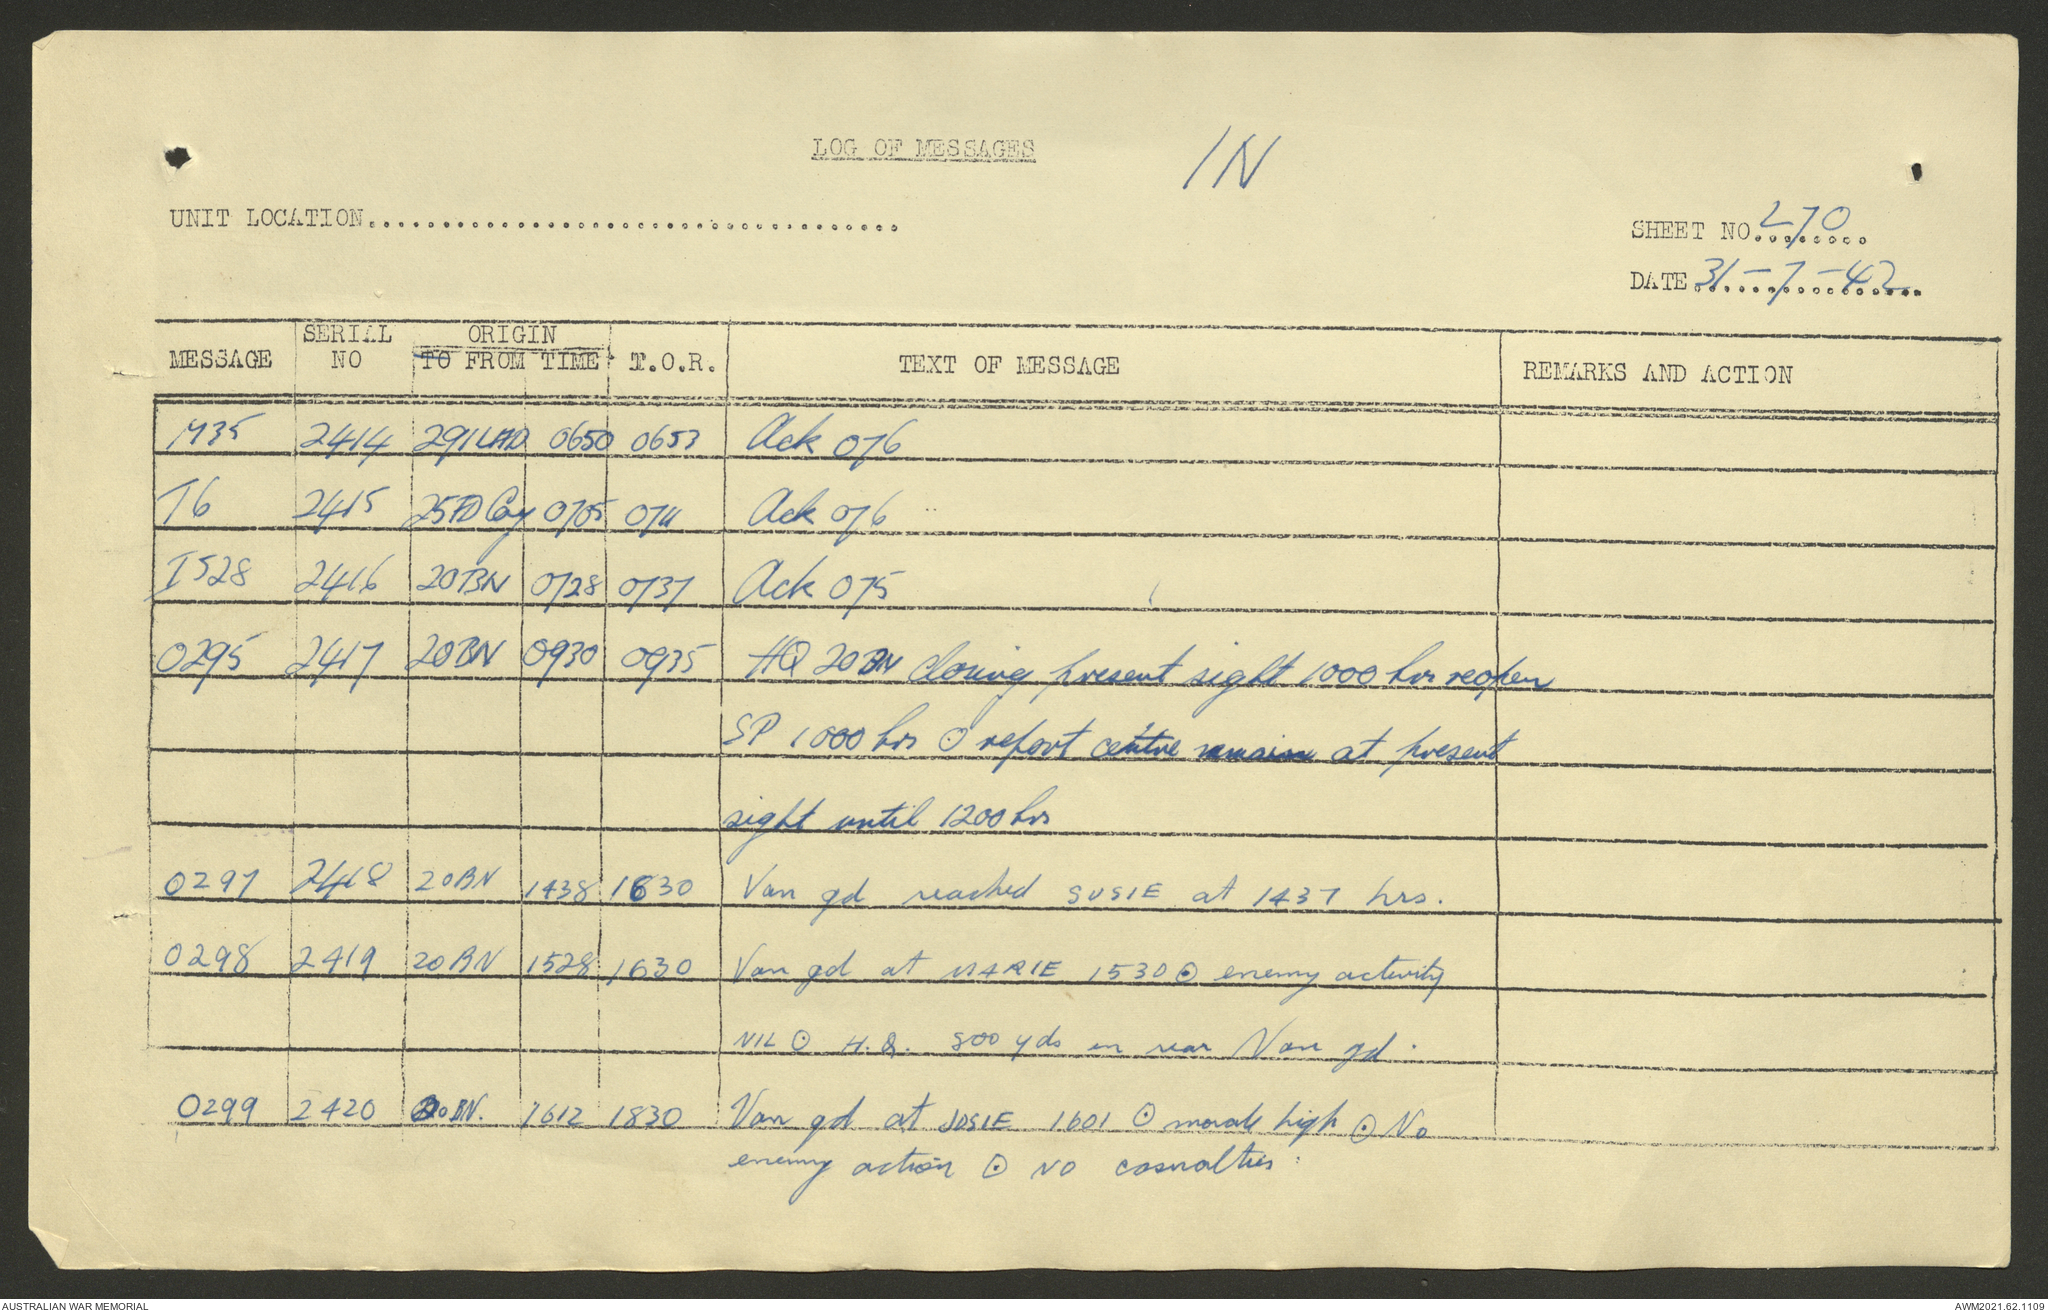 LOG OF MESSAGES IN
UNIT LOCATION......................................
SHEET NO. 270
DATE 31-7-42
MESSAGE SERIAL NO ORIGIN TO FROM TIME T.O.R. TEXT OF MESSAGE REMARKS AND ACTION
M35 2414 291LAD 0650 0653 Ack 076
I6 2415 25FD Coy 0705 0711 Ack 076
I528 2416 20BN 0728 0737 Ack 075
0295 2417 20BN 0930 0935 HQ 20BN closing present sight 1000 hrs reopen
SP 1000 hrs ⊙ report centre remain at present
sight until 1200 hrs
0297 2418 20BN 1438 1630 Van gd reached SUSIE at 1437 hrs.
0298 2419 20BN 1528 1630 Van gd at MARIE 1530 ⊙ enemy activity
NIL ⊙ H.Q. 800 yds in rear Van gd.
0299 2420 20BN. 1612 1830 Van gd at JOSIE 1601 ⊙ morale high ⊙ No
enemy action ⊙ NO casualties.
AUSTRALIAN WAR MEMORIAL
AWM2021.62.1109